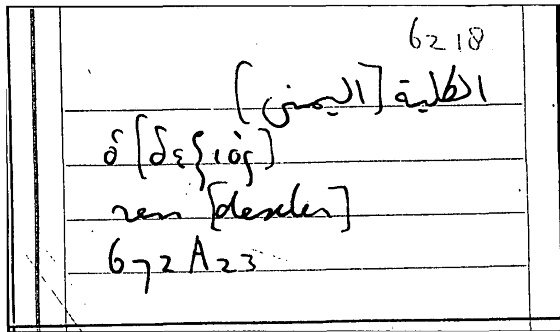 6218
الكلية [اليمنى]
ὁ [δεξιός]
ren [dexter]
672A23